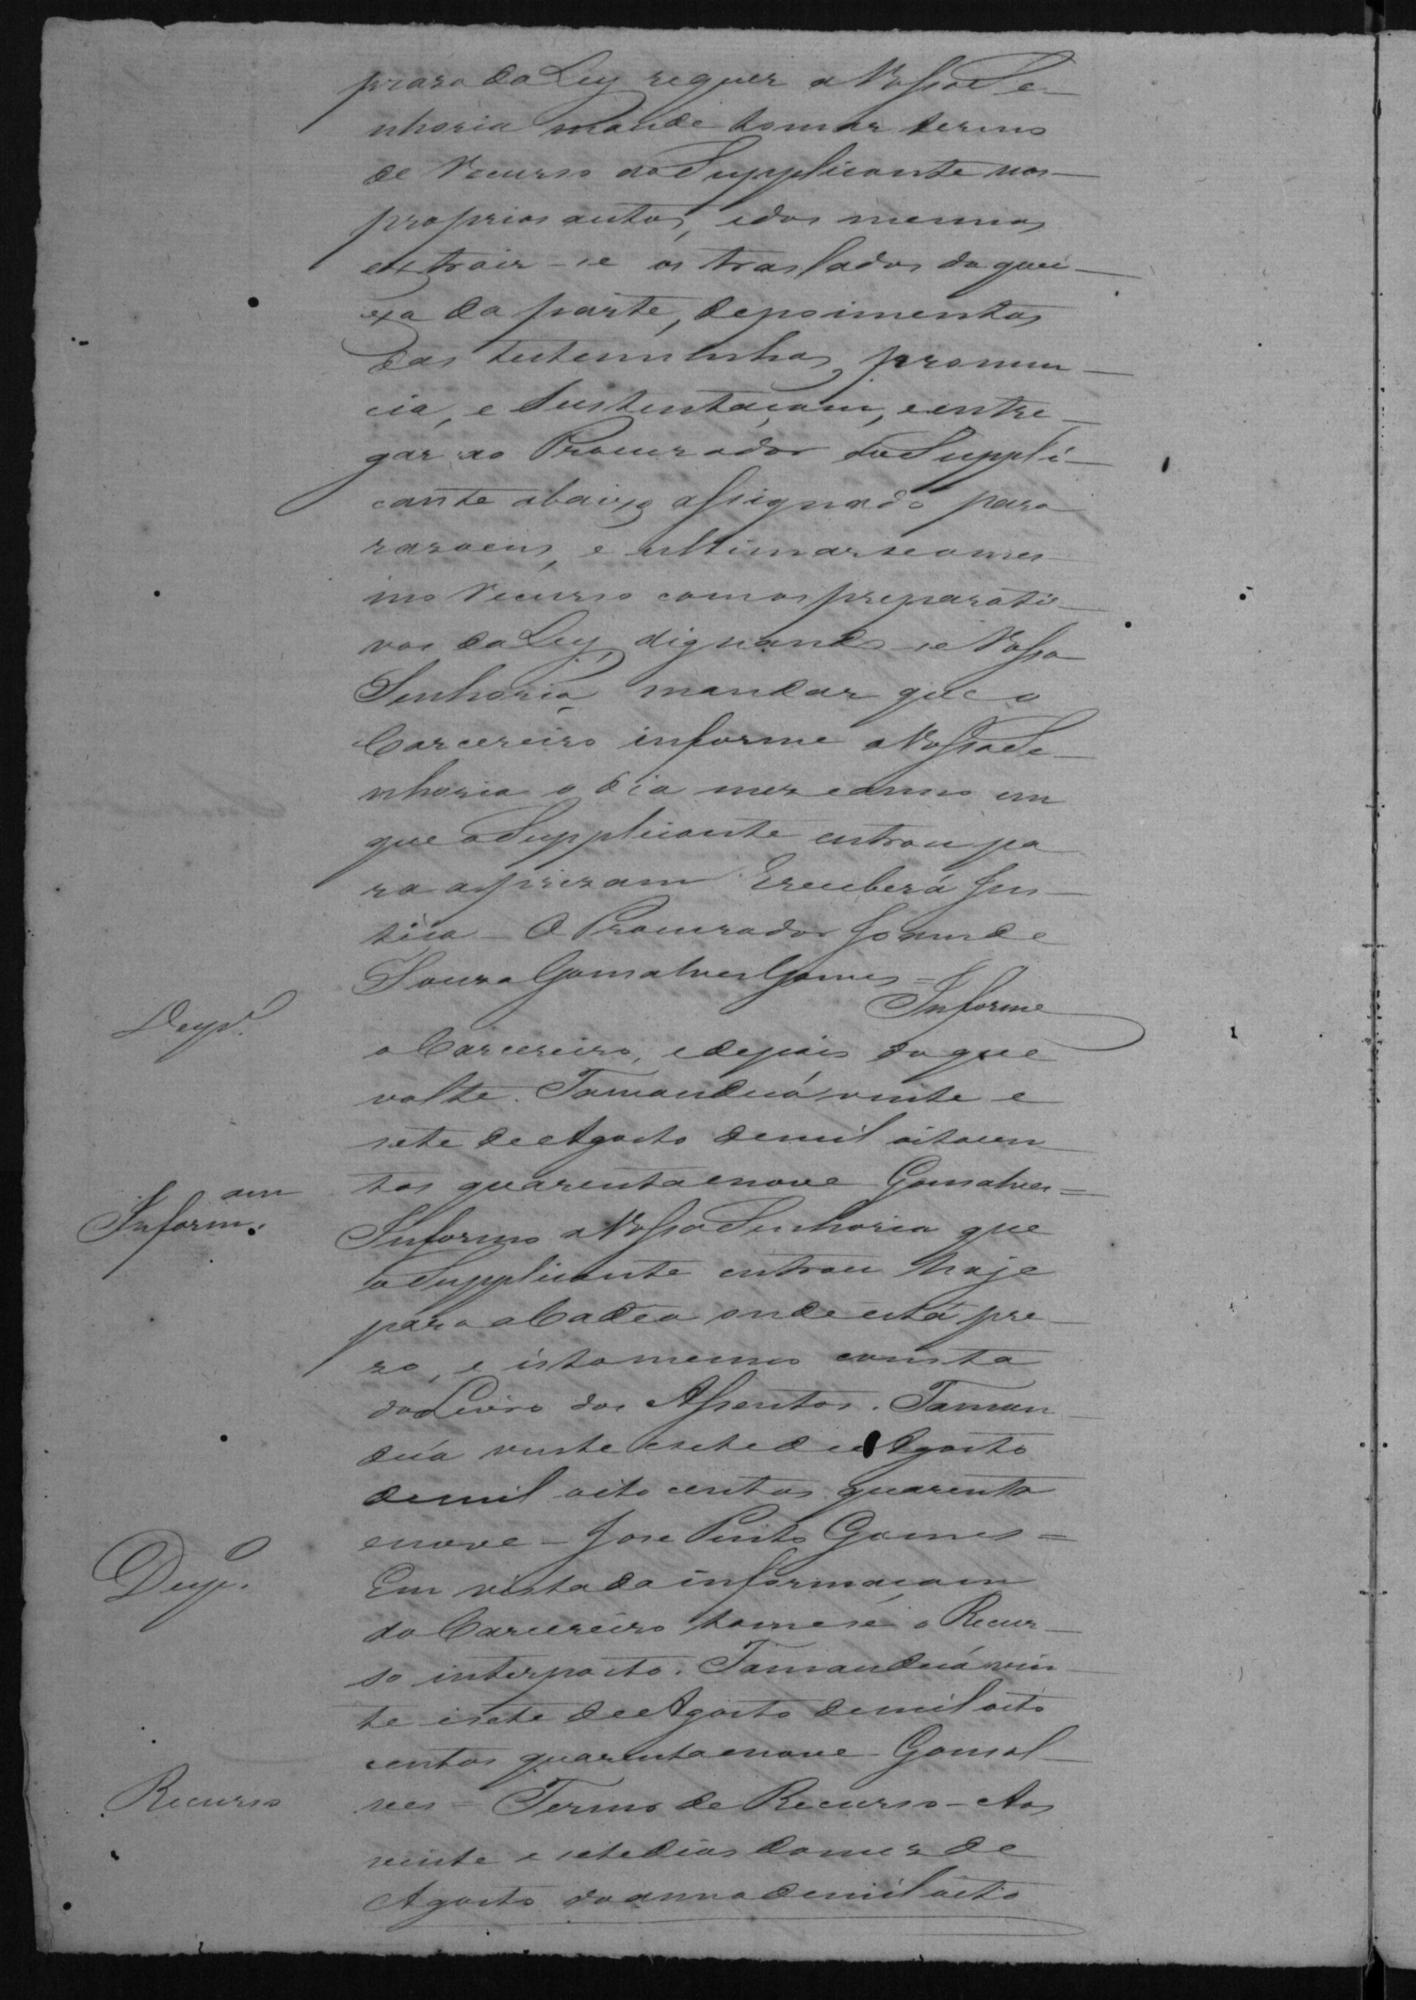 prazo da Ley requer a Vossa Se-
nhoria mande tomar termo
de Recurso ao Supplicante nos
proprios autos, e dos mesmos
extrair-se os traslados da quei-
xa da parte, depoimentos
das testemunhas, pronun-
cia, e Sustentaçam, e entre-
gar ao Procurador do Suppli-
cante abaixo assignado para
razoens, e ultimar se o mes-
mo Recurso com os preparati-
vos da Ley, dignando-se Vossa
Senhoria mandar que o
Carcereiro informe a Vossa Se-
nhoria o dia mez e anno em
que o Supplicante entrou pa
ra a prizam E receberá Jus-
tiça - O Procurador João de
Souza Gonsalves Gomes =
Desp.º Informe
o Carcereiro, e depois do que
volte. Tamanduá vinte e
sete de Agosto de mil oitocen
tos quarenta e nove Gonsalves =
Inform.am Informo a Vossa Senhoria que
o Supplicante entrou hoje
para a Cadea onde está pre-
zo, e isto mesmo consta
do Livro dos Assentos. Taman-
duá vinte e sete de Agosto
de mil oito centos quarenta
e nove - Jose Pinto Gomes =
Desp.º Em vista da informaçam
do Carcereiro tome se o Recur-
so interposto. Tamanduá vin-
te e sete de Agosto de mil oito
centos quarenta e nove - Gonsal-
Recurso ves = Termo de Recurso - Aos
vinte e sete dias do mez de
Agosto do anno de mil oito